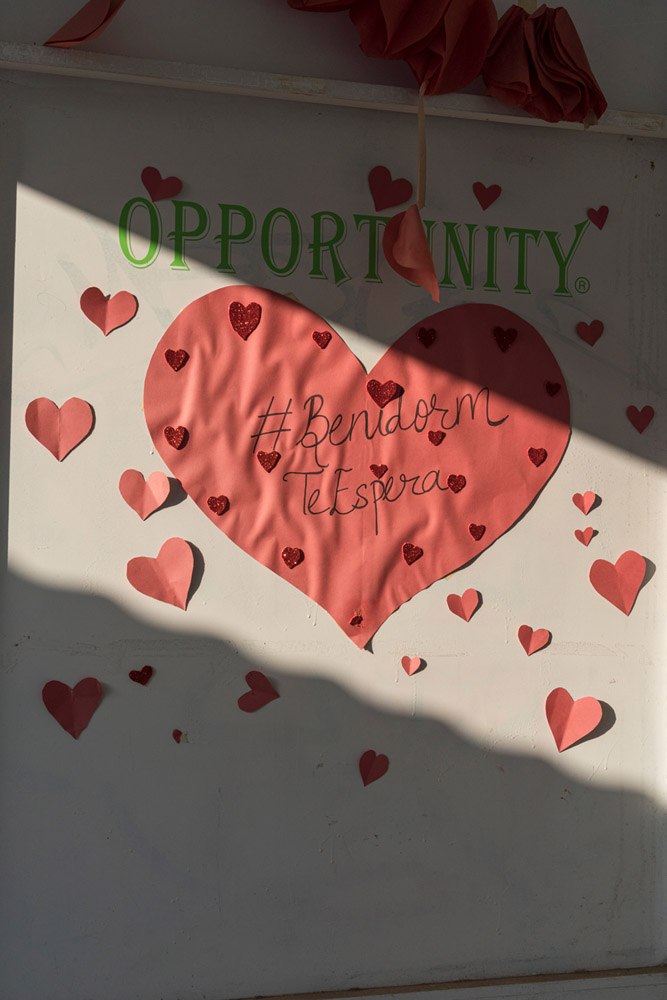 OPPORTUNITY®
#Benidorm
TeEspera